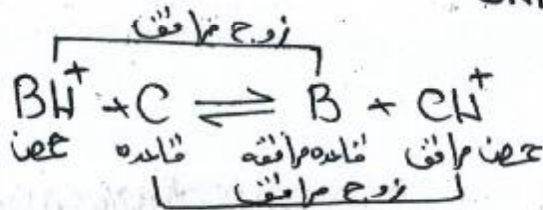 زوج مرافق
BH⁺ + C ⇌ B + CH⁺
حمض قاعده قاعده مرافقه حمض مرافق
زوج مرافق